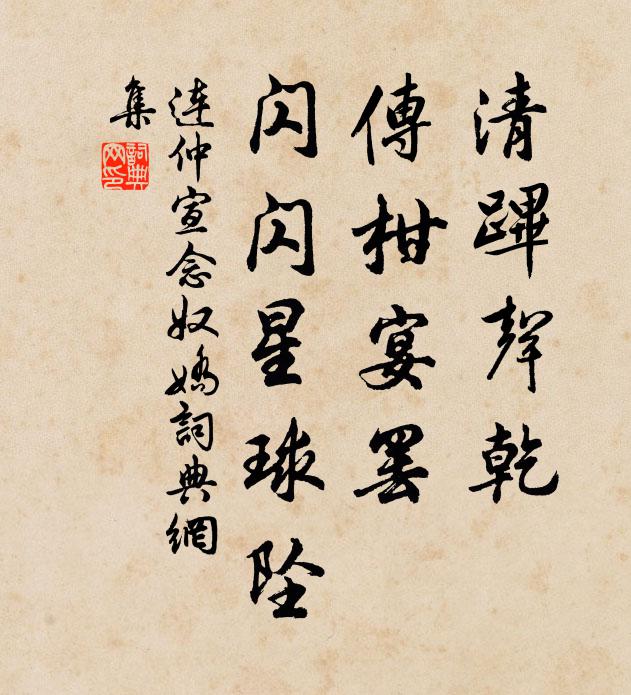 清蹕聲乾
傳柑宴罷
閃閃星球墜
連仲宣念奴嬌詞典網
集
詞典網印